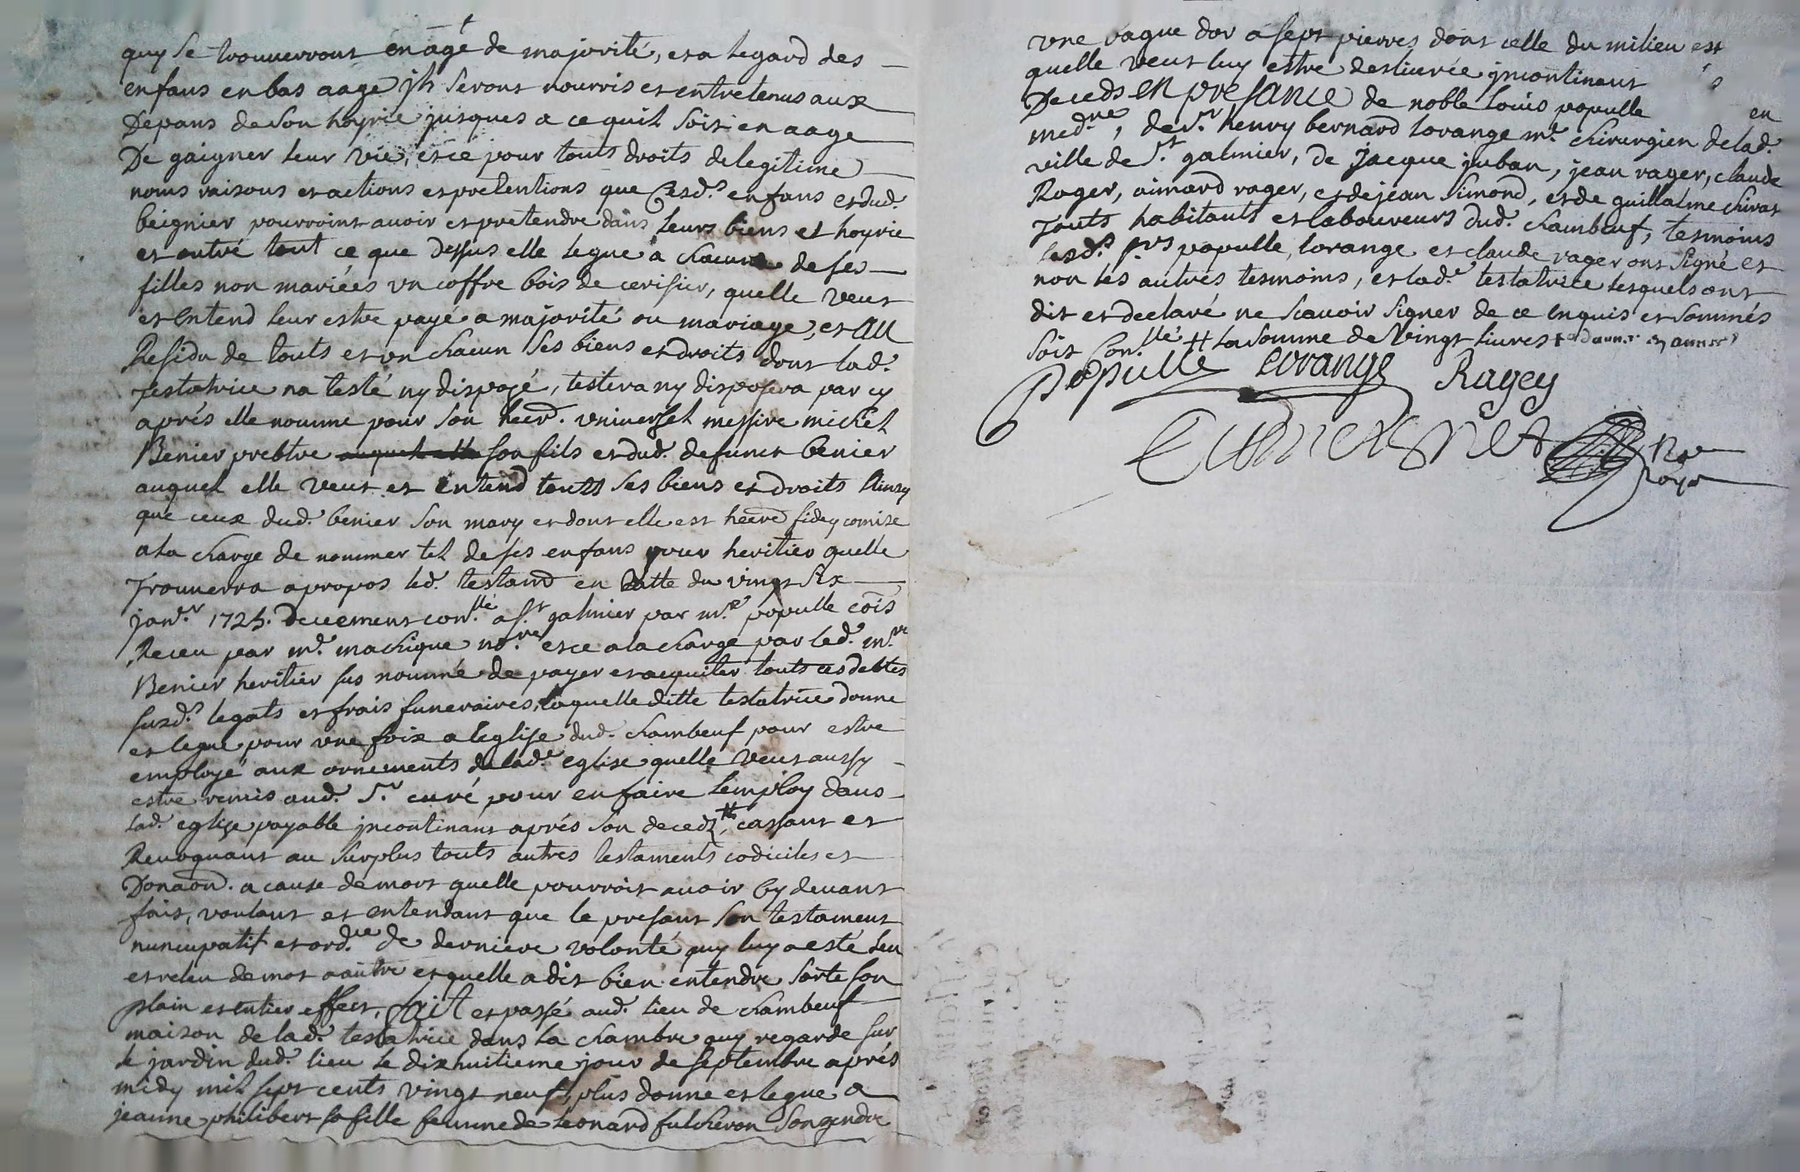 quy se trouverront en age de majorité, et a legard des
enfans en bas aage jls seront nourris et entretenus aux
Depans de son hoyrie jusques a ce quil soit en aage
De gaigner leur vie, et ce pour touts droits de legitime
noms raisons et actions et pretentions que lesd.s enfans et dud.
beignier pourroint avoir et pretendre dans leurs biens et hoyrie
et outre tout ce que dessus elle legue a chacune de ses
filles non mariées un coffre bois de cerisier, quelle veut
et entend leur estre payé a majorité ou mariage, et au
Residu de touts et un chacun ses biens et droits dont lad.
testatrice na testé ny disposé, testera ny disposera par cy
aprés elle nomme pour son heer. universel messire michel
Benier prebtre son fils et dud. defunct benier
auquel elle veut et entend touts ses biens et droits ainsy
que ceux dud. benier son mary et dont elle est heere fideycomise
a la charge de nommer tel de ses enfans pour heritier quelle
trouverra apropos led. testam en datte du vingt six
janv.r 1725. deuement con.llé a S.t galmier par m.e populle cois
Receu par m.e machique no.re et ce a la charge par led. m.re
Benier heritier sus nommé de payer et acquiter touts ces debtes
susd.s legats et frais funeraires, laquelle ditte testatrice donne
et legue pour une foix a leglise dud. chambeuf pour estre
employé aux ornements de lad.e eglise quelle veut aussy
estre remis aud. S.r curé pour en faire lemploy dans
lad. eglise payable jncontinant aprés son deced #, cassant et
Revoquant au surplus touts autres testaments codiciles et
Donaon. a cause de mort quelle pourroit avoir cy devant
fait, voulant et entendant que le presant son testament
nuncupatif et ord.ce de derniere volonté quy luy a esté leu
et releu de mot a autre et quelle a dit bien entendre sorte son
plain et entier effect, fait et passé aud. lieu de chambeuf
maison de lad. testatrice dans la chambre quy regarde sur
le jardin dud. lieu le dixhuitieme jour de septembre aprés
midy mil sept cents vingt neuf, plus donne et legue a
jeanne philibert sa fille femme de leonard fulcheron son gendre
une bague dor a sept pierres dont celle du milieu est
quelle veut luy estre deslivrée jncontinent
Deceds en presance de noble louis populle en
med.ne, de S.r henry bernard lorange m.e chirurgien de lad.
ville de S.t galmier, de Jacque juban, jean rager, claude
Rager, aimard rager, et de jean Simond, et de guillaime chirat
touts habitants et laboureurs dud. chambeuf, tesmoins
lesd.s S.rs populle, lorange et claude rager ont signé et
non les autres tesmoins, et lad.e testatrice lesquels ont
dit et declaré ne scavoir signer de ce enquis et sommés
soit con.llé # la somme de vingt livres
Populle Lorange Ragey
No.re
Royal